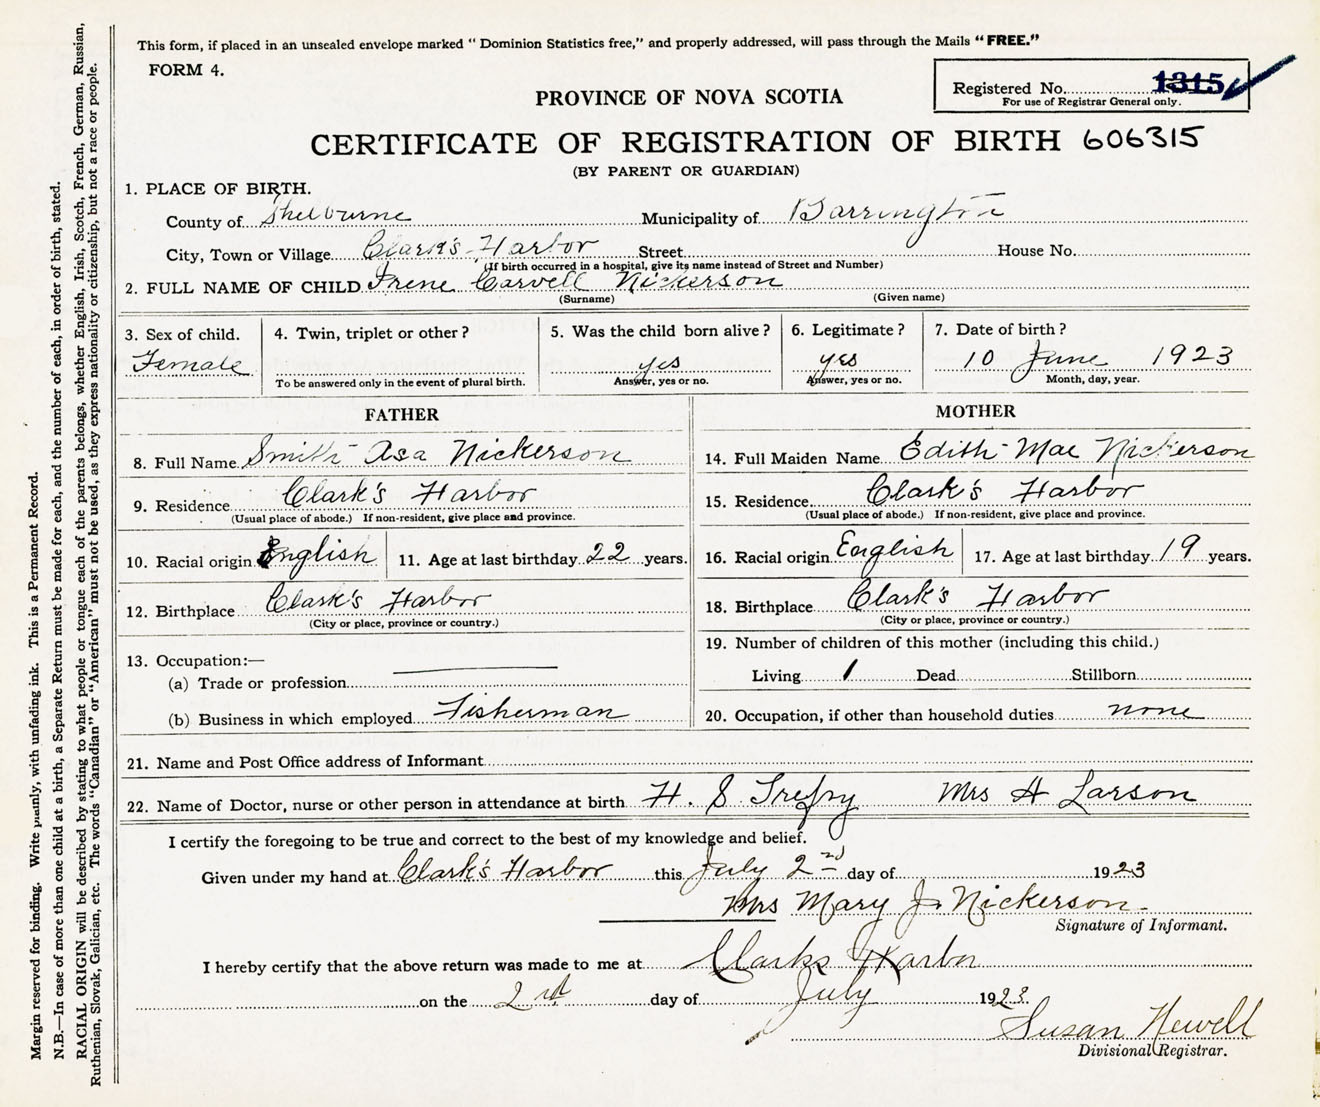 This form, if placed in an unsealed envelope marked "Dominion Statistics free," and properly addressed, will pass through the Mails "FREE."
FORM 4.
Registered No. 1315
For use of Registrar General only.
PROVINCE OF NOVA SCOTIA
CERTIFICATE OF REGISTRATION OF BIRTH 606315
(BY PARENT OR GUARDIAN)
1. PLACE OF BIRTH.
County of Shelburne Municipality of Barrington
City, Town or Village Clark's Harbor Street House No.
(If birth occurred in a hospital, give its name instead of Street and Number)
2. FULL NAME OF CHILD Irene Carvell Nickerson
(Surname) (Given name)
3. Sex of child. 4. Twin, triplet or other? 5. Was the child born alive? 6. Legitimate? 7. Date of birth?
Female yes yes 10 June 1923
To be answered only in the event of plural birth. Answer, yes or no. Answer, yes or no. Month, day, year.
FATHER
8. Full Name Smith Asa Nickerson
9. Residence Clark's Harbor
(Usual place of abode.) If non-resident, give place and province.
10. Racial origin English 11. Age at last birthday 22 years.
12. Birthplace Clark's Harbor
(City or place, province or country.)
13. Occupation:—
(a) Trade or profession
(b) Business in which employed Fisherman
MOTHER
14. Full Maiden Name Edith Mae Nickerson
15. Residence Clark's Harbor
(Usual place of abode.) If non-resident, give place and province.
16. Racial origin English 17. Age at last birthday 19 years.
18. Birthplace Clark's Harbor
(City or place, province or country.)
19. Number of children of this mother (including this child.)
Living 1 Dead Stillborn
20. Occupation, if other than household duties none
21. Name and Post Office address of Informant
22. Name of Doctor, nurse or other person in attendance at birth H. S Trefry Mrs A Larson
I certify the foregoing to be true and correct to the best of my knowledge and belief.
Given under my hand at Clark's Harbor this July 2nd day of 1923
Mrs Mary J. Nickerson
Signature of Informant.
I hereby certify that the above return was made to me at Clarks Harbor
on the 2nd day of July 1923.
Susan Newell
Divisional Registrar.
Margin reserved for binding. Write plainly, with unfading ink. This is a Permanent Record.
N.B.—In case of more than one child at a birth, a Separate Return must be made for each, and the number of each, in order of birth, stated.
RACIAL ORIGIN will be described by stating to what people or tongue each of the parents belongs, whether English, Irish, Scotch, French, German, Russian,
Ruthenian, Slovak, Galician, etc. The words "Canadian" or "American" must not be used, as they express nationality or citizenship, but not a race or people.